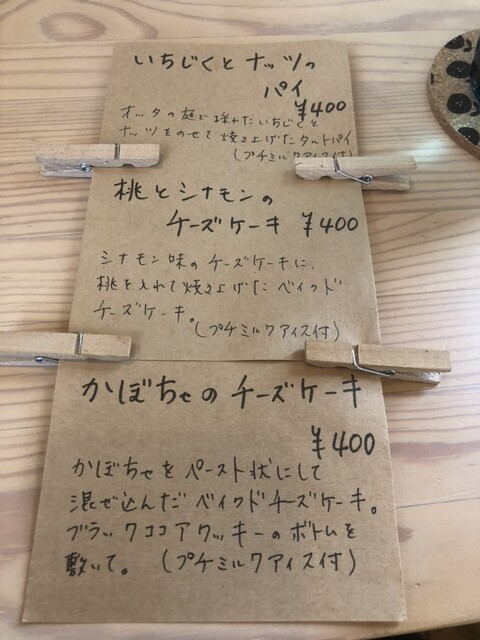 いちじくとナッツの
パイ
¥400
オッタの庭で採れたいちじくと
ナッツをのせて焼き上げたタルトパイ
(プチミルクアイス付)
桃とシナモンの
チーズケーキ ¥400
シナモン味のチーズケーキに、
桃を入れて焼き上げたベイクド
チーズケーキ。
(プチミルクアイス付)
かぼちゃのチーズケーキ
¥400
かぼちゃをペースト状にして
混ぜ込んだベイクドチーズケーキ。
ブラックココアクッキーのボトムを
敷いて。 (プチミルクアイス付)